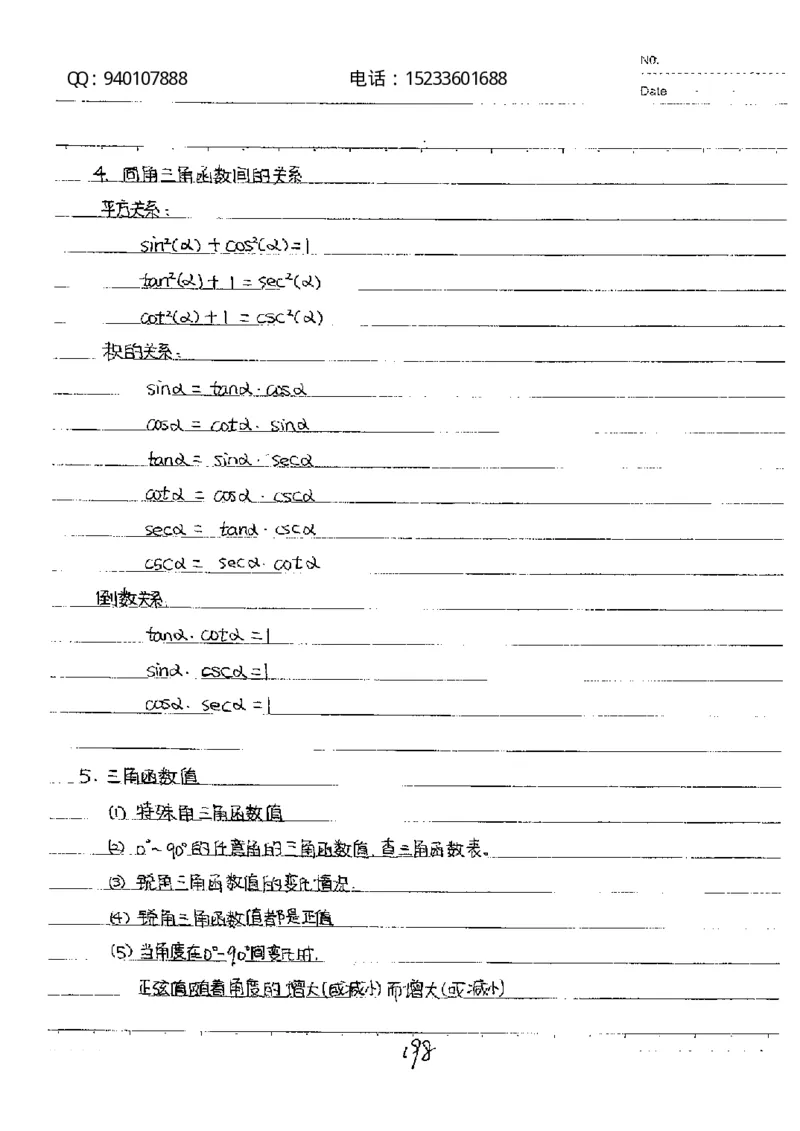 QQ：940107888 电话：15233601688
NO.
Date
4. 同角三角函数间的关系
平方关系：
sin²(α)+cos²(α)=1
tan²(α)+1=sec²(α)
cot²(α)+1=csc²(α)
积的关系：
sinα=tanα·cosα
cosα=cotα·sinα
tanα=sinα·secα
cotα=cosα·cscα
secα=tanα·cscα
cscα=secα·cotα
倒数关系
tanα·cotα=1
sinα·cscα=1
cosα·secα=1
5. 三角函数值
(1) 特殊角三角函数值
(2) 0°~90°的任意角的三角函数值,查三角函数表。
(3) 锐角三角函数值的变化情况.
(4) 锐角三角函数值都是正值
(5) 当角度在0°~90°间变化时,
正弦值随着角度的增大(或减小)而增大(或减小)
198